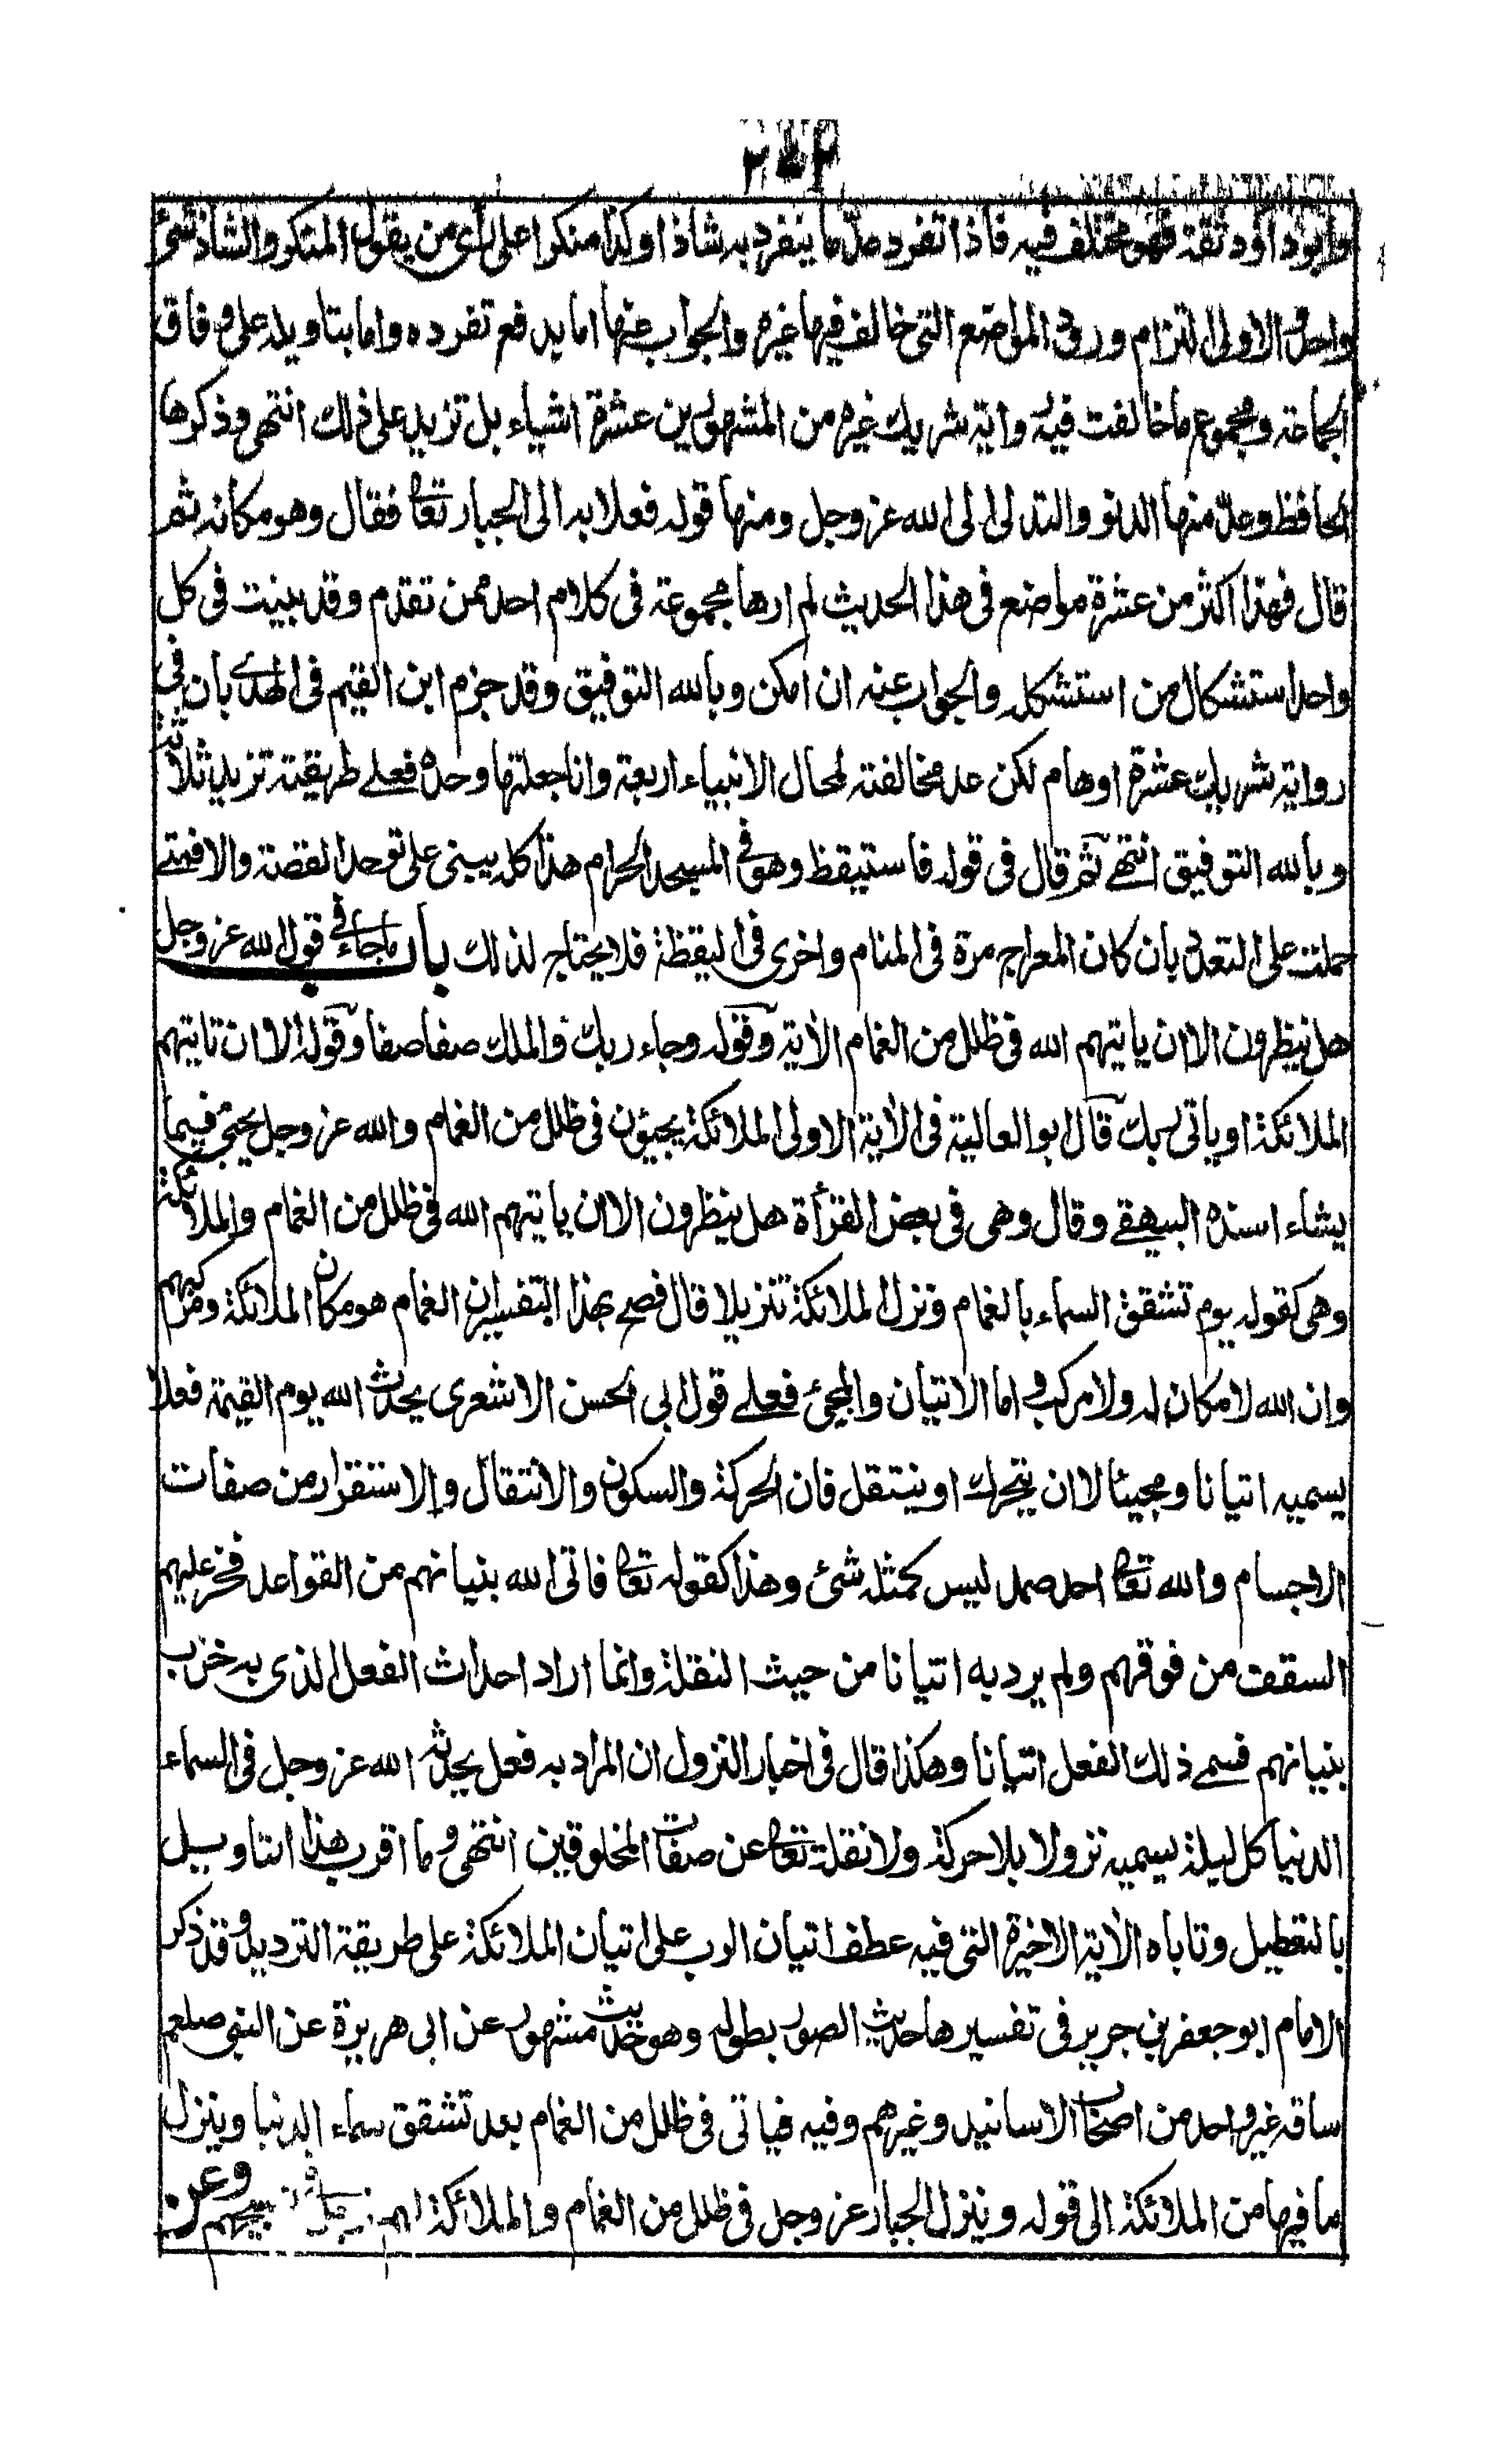 وابوداود ثقة فهو مختلف فيه فاذا تفرد عد ما ينفرد به شاذا وكذا منكرا على رأى من يقول المنكر والشاذ شئ
واحد والاولى التزام ورود المواضع التى خالف فيها غيره والجواب عنها اما يدفع تفرده واما بتاويله على وفاق
الجماعة ومجموع ما خالفت فيه رواية شريك غيره من المشهورين عشرة اشياء بل تزيد على ذلك انتهى وذكرها
الحافظ وعد منها الدنو والتدلى الى الله عز وجل ومنها قوله فعلا به الى الجبار تعالى فقال وهو مكانه ثم
قال فهذا اكثر من عشرة مواضع فى هذا الحديث لم ارها مجموعة فى كلام احد ممن تقدم وقد بينت فى كل
واحد استشكال من استشكله والجواب عنه ان امكن وبالله التوفيق وقد جزم ابن القيم فى الهدے بان فى
رواية شريك عشرة اوهام لكن عد مخالفته لمحال الانبياء اربعة وانا جعلتها وحدة فعلے طريقته تزيد ثلاثة
وبالله التوفيق انتهے ثم قال فى قوله فاستيقظ وهو فى المسجد الحرام هذا كله يبنى على توحد القصة والا فمتے
حملت على التعدد بان كان المعراج مرة فى المنام واخرى فى اليقظة فلا يحتاج لذلك باب ماجاء فى قول الله عز وجل
هل ينظرون الا ان ياتيهم الله فى ظلل من الغمام الاية وقوله وجاء ربك والملك صفا صفا وقوله الا ان تاتيهم
الملائكة او ياتى ربك قال ابو العالية فى الاية الاولى الملائكة يجيؤن فى ظلل من الغمام والله عز وجل يجئ فيما
يشاء اسنده البيهقے وقال وهى فى بعض القرأة هل ينظرون الا ان ياتيهم الله فى ظلل من الغمام والملائكة
وهى كقوله يوم تشقق السماء بالغمام ونزل الملائكة تنزيلا قال فصح بهذا التفسيران الغمام هو مكان الملائكة ومركبهم
وان الله لا مكان له ولا مركب و اما الاتيان والمجئ فعلے قول ابى الحسن الاشعرى يحدث الله يوم القيمة فعلا
يسميه اتيانا ومجيئا لا ان يتحرك او ينتقل فان الحركة والسكون والانتقال والاستقرار من صفات
الاجسام والله تعالى احد صمد ليس كمثله شئ وهذا كقوله تعالى فاتى الله بنيانهم من القواعد فخر عليهم
السقف من فوقهم ولم يرد به اتيانا من حيث النقلة وانما اراد احداث الفعل الذى به خرب
بنيانهم فسمے ذلك الفعل اتيانا وهكذا قال فى اخبار النزول ان المراد به فعل يحدثه الله عز وجل فى السماء
الدنيا كل ليلة يسميه نزولا بلا حركة ولا نقلة تعالى عن صفات المخلوقين انتهى وما اقرب هذا التاويل
بالتعطيل وتاباه الاية الاخيرة التى فيه عطف اتيان الرب على اتيان الملائكة على طريقة الترديد وقد ذكر
الامام ابو جعفر بن جرير فى تفسيرها حديث الصور بطوله وهو حديث مشهور عن ابى هريرة عن النبى صلعم
ساقه غير واحد من اصحاب الاسانيد وغيرهم وفيه فياتى فى ظلل من الغمام بعد تشقق سماء الدنيا وينزل
ما فيها من الملائكة الى قوله وينزل الجبار عز وجل فى ظلل من الغمام والملائكة لهم
وعن